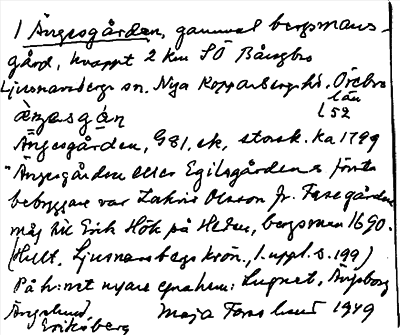 1 Ängesgården, gammal bergsmans-
gård, knappt 2 km SÖ Bångbro
Ljusnarsbergs sn. Nya Kopparbergs hd. Örebro
län
L 52
ängasgạ̈n
Ängesgården, G 81, ek, storsk. ka 1799
"Ängesgården eller Egilsgårdens första
bebyggare var Zakris Olsson fr. Fasegården
måg till Erik Hök på Heden, bergsman 1690.
(Hult. Ljusnarsbergs krön., 1. uppl. s. 199)
På h:met nyare epnahem: Lugnet, Ängsborg
Ängslund, Maja Forslund 1949
Eriksberg